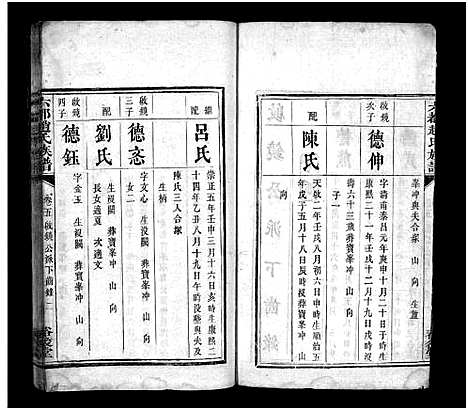 六都趙氏族譜
峯冲與夫合塚 山 向 生
啟鏡次子
德伸
字壽甫泰昌元年庚申十月十二日申時生
康熙二十一年壬戌十二月十九日戌時
壽六十三歲葬寶峯冲 山 向
配
陳氏
天啟二年壬戌八月初六日申時生順治五
年戊子五月十八日辰時歿葬寶峯冲 山
向
繼配
呂氏
崇正五年壬申三月十六日亥時生康熙二
十四年乙丑八月十九日午時沒葬與夫及
陳氏三人合塚
生楠
啟鏡三子
德忞
字文心 生歿闕 葬寶峯冲 山 向
女二
配
劉氏
生歿闕 葬寶峯冲 山 向
長女適夏 次適文
啟鏡四子
德鈺
字金玉 生歿闕 葬寶峯冲 山 向
六都趙氏族譜
卷五 啟鏡公派下齒錄